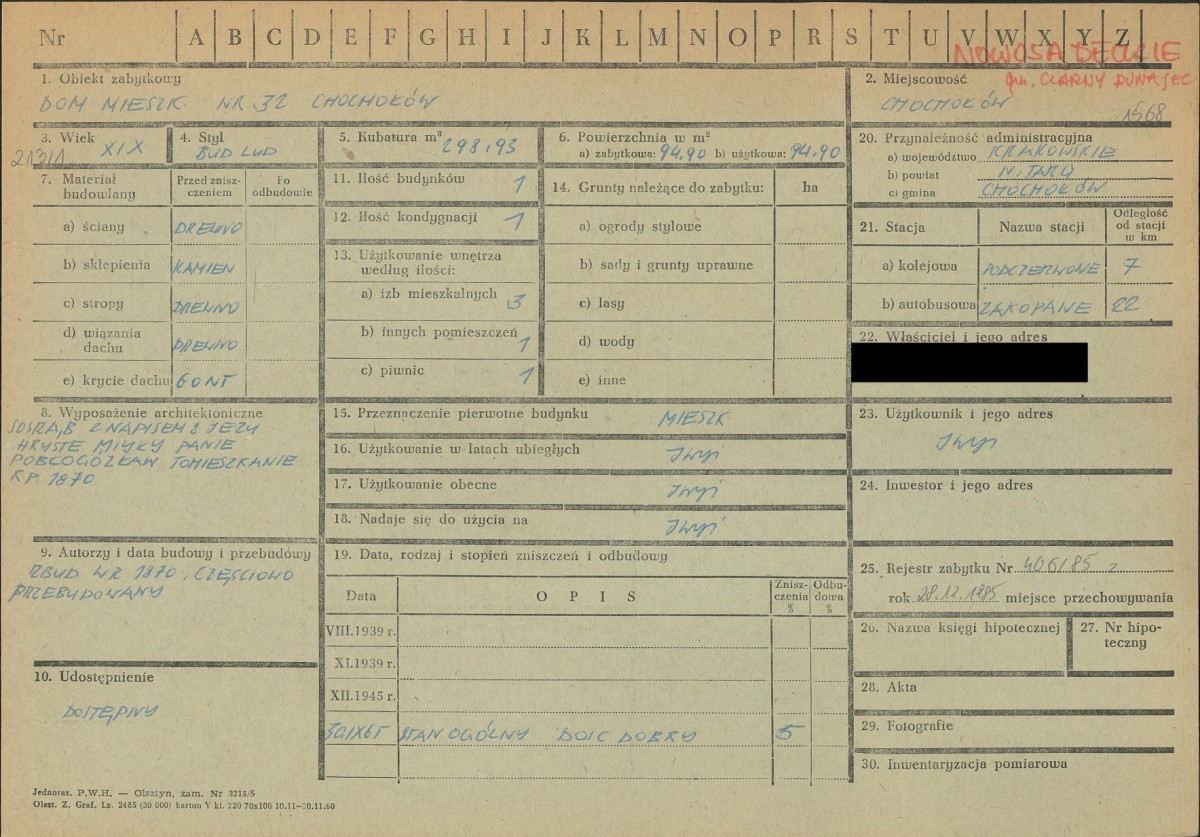 Nr A B C D E F G H I J K L M N O P R S T U V W X Y Z
NOWOSĄDECKIE
gm. CZARNY DUNAJEC
1. Obiekt zabytkowy
DOM MIESZK. NR 32 CHOCHOKÓW
2. Miejscowość
CHOCHOKÓW
1568
3. Wiek
XIX
21311
4. Styl
BUD LUD
5. Kubatura m³
298,93
6. Powierzchnia w m²
a) zabytkowa: 94,90 b) użytkowa: 94,90
20. Przynależność administracyjna
a) województwo KRAKOWSKIE
b) powiat N. TARG
c) gmina CHOCHOKÓW
7. Materiał budowlany
Przed znisz-
czeniem
Po
odbudowie
a) ściany DREWNO
b) sklepienia KAMIEN
c) stropy DREWNO
d) wiązania
dachu DREWNO
e) krycie dachu GONT
11. Ilość budynków 1
12. Ilość kondygnacji 1
13. Użytkowanie wnętrza
według ilości:
a) izb mieszkalnych 3
b) innych pomieszczeń 1
c) piwnic 1
14. Grunty należące do zabytku: ha
a) ogrody stylowe
b) sady i grunty uprawne
c) lasy
d) wody
e) inne
21. Stacja Nazwa stacji
Odległość
od stacji
w km
a) kolejowa PODCZERWONE 7
b) autobusowa ZAKOPANE 22
22. Właściciel i jego adres
8. Wyposażenie architektoniczne
SOSRĄB Z NAPISEM: JEZU
HRYSTE MIYKY PANIE
POBCOGÓZKAW TOMIESZKANIE
RP 1870
15. Przeznaczenie pierwotne budynku MIESZK
16. Użytkowanie w latach ubiegłych
17. Użytkowanie obecne
18. Nadaje się do użycia na
23. Użytkownik i jego adres
24. Inwestor i jego adres
9. Autorzy i data budowy i przebudowy
ZBUD W R 1870, CZĘŚCIOWO
PRZEBUDOWANY
19. Data, rodzaj i stopień zniszczeń i odbudowy
Data O P I S
Znisz-
czenia
%
Odbu-
dowa
%
VIII.1939 r.
XI.1939 r.
XII.1945 r.
30.IX65 STAN OGÓLNY DOIC DOBRY 5
25. Rejestr zabytku Nr 406/85
rok 28.12.1985 miejsce przechowywania
26. Nazwa księgi hipotecznej
27. Nr hipo-
teczny
10. Udostępnienie
DOSTĘPNY
28. Akta
29. Fotografie
30. Inwentaryzacja pomiarowa
Jednoraz. P.W.H. — Olsztyn, zam. Nr 3215/S
Olszt. Z. Graf. Lz. 2485 (30 000) karton V kl. 220 70x100 10.11—30.11.60